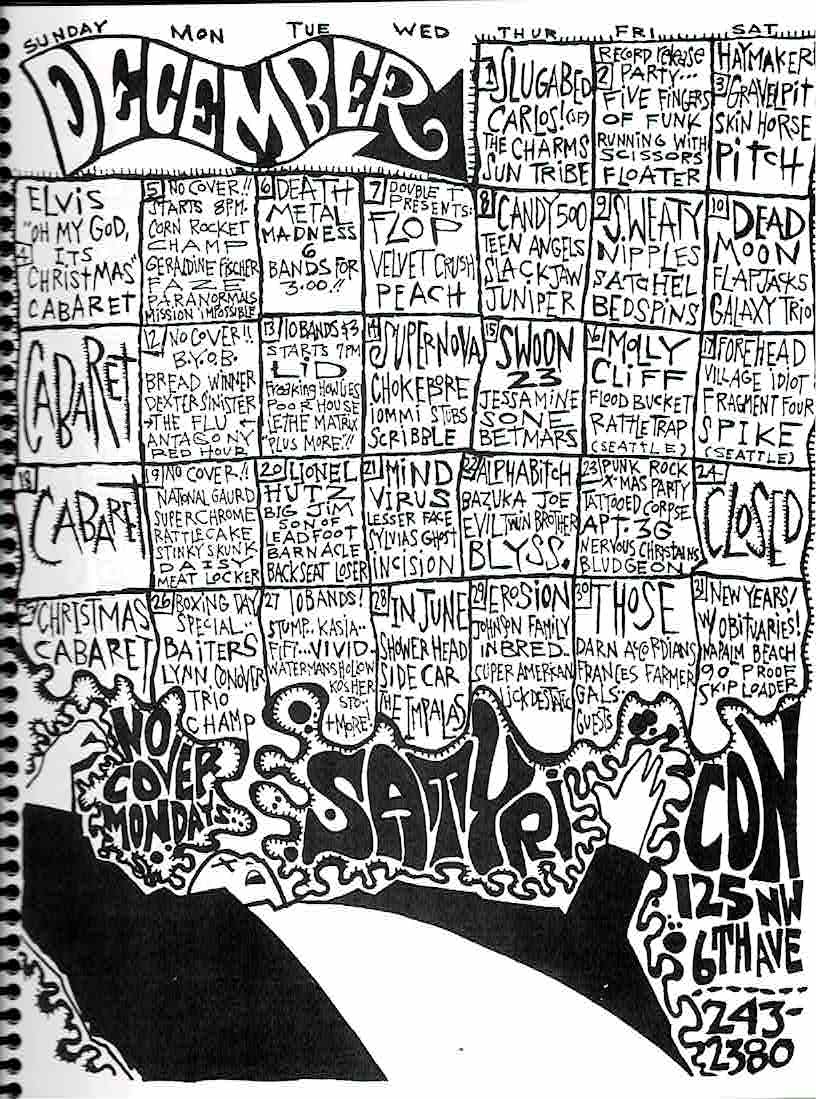 SUNDAY MON TUE WED THUR FRI SAT
DECEMBER
1 SLUGABED
CARLOS! (SF)
THE CHARMS
SUN TRIBE
RECORD RELEASE
2 PARTY...
FIVE FINGERS
OF FUNK
RUNNING WITH
SCISSORS
FLOATER
HAYMAKER
3 GRAVELPIT
SKIN HORSE
PITCH
ELVIS
"OH MY GOD,
4 ITS
CHRISTMAS"
CABARET
5 NO COVER!!
STARTS 8PM.
CORN ROCKET
CHAMP
GERALDINE FISCHER
FAZE
PARANORMALS
MISSION IMPOSSIBLE
6 DEATH
METAL
MADNESS
6
BANDS FOR
3.00!!
7 DOUBLE T
PRESENTS:
FLOP
VELVET CRUSH
PEACH
8 CANDY 500
TEEN ANGELS
SLACKJAW
JUNIPER
9 SWEATY
NIPPLES
SATCHEL
BEDSPINS
10 DEAD
MOON
FLAPJACKS
GALAXY TRIO
CABARET
12 NO COVER!!
B.Y.O.B.
BREAD WINNER
DEXTER SINISTER
→THE FLU←
ANTAGONY
RED HOUR
13 10 BANDS $3
STARTS 7PM
LID
FREAKING HOWLIES
POOR HOUSE
LE/THE MATRIX
"PLUS MORE"!!
14 SUPERNOVA
CHOKEBORE
IOMMI STUBS
SCRIBBLE
15 SWOON
23
JESSAMINE
SONE
BETMARS
16 MOLLY
CLIFF
FLOOD BUCKET
RATTLETRAP
(SEATTLE)
17 FOREHEAD
VILLAGE IDIOT
FRAGMENT FOUR
SPIKE
(SEATTLE)
18
CABARET
19 NO COVER!!
NATIONAL GAURD
SUPERCHROME
RATTLECAKE
STINKYSKUNK
DAISY
MEAT LOCKER
20 LIONEL
HUTZ
BIG JIM
SON OF
LEADFOOT
BARNACLE
BACKSEAT LOSER
21 MIND
VIRUS
LESSER FACE
SYLVIAS GHOST
INCISION
22 ALPHABITCH
BAZUKA JOE
EVIL TWIN BROTHER
BLYSS.
23 PUNK ROCK
X-MAS PARTY
TATTOOED CORPSE
APT. 3G
NERVOUS CHRISTIANS
BLUDGEON
24
CLOSED
25 CHRISTMAS
CABARET
26 BOXING DAY
SPECIAL..
BAITERS
LYNN CONOVER
TRIO
CHAMP
27 10 BANDS!
STUMP.. KASIA..
VIVID..
WATERMANS HOLLOW
KOSHER
+MORE!
28 IN JUNE
SHOWER HEAD
SIDE CAR
THE IMPALAS
29 EROSION
JOHNSON FAMILY
INBRED..
SUPER AMERICAN
30 THOSE
DARN ACCORDIANS
FRANCES FARMER
GALS..
GUESTS
31 NEW YEARS!
W/ OBITUARIES!
NAPALM BEACH
90 PROOF
SKIP LOADER
NO
COVER
MONDAYS..
SATYRICON
125 NW
6TH AVE
243-
2380